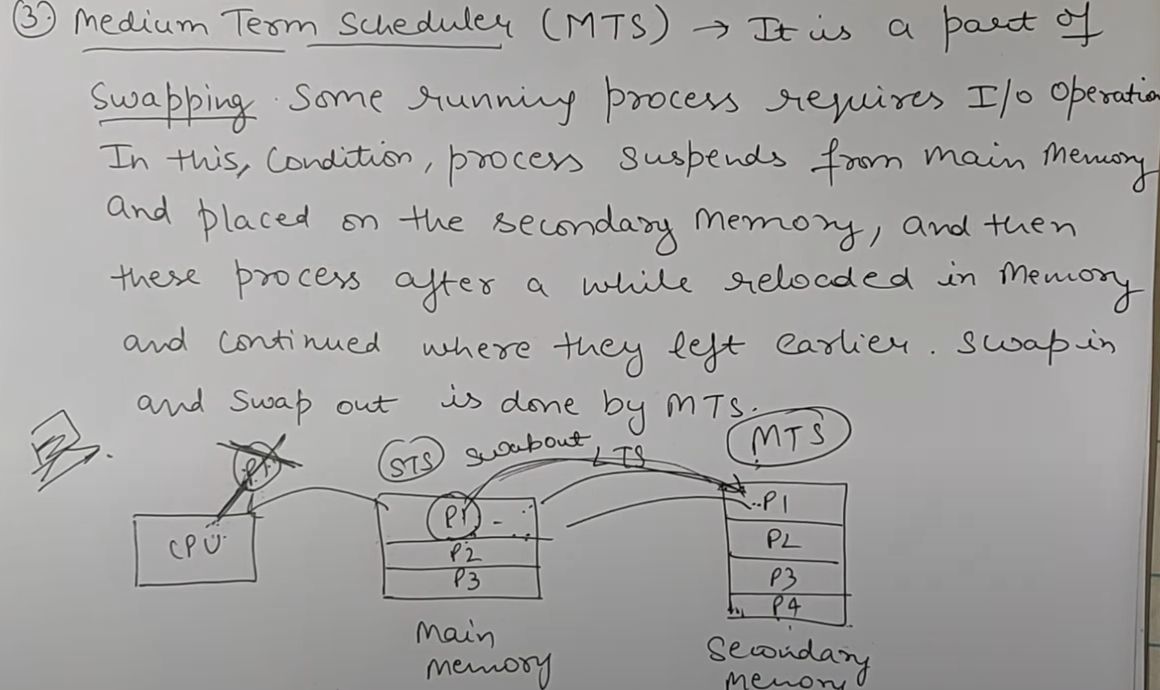 ③ Medium Term Scheduler (MTS) → It is a part of
Swapping. Some running process requires I/o operation
In this, Condition, process suspends from main memory
and placed on the secondary memory, and then
these process after a while reloaded in memory
and continued where they left earlier. swap in
and swap out is done by MTS.
STS swapout LTS MTS
P1
CPU
P1
P2
P3
Main
memory
P1
P2
P3
P4
Secondary
memory